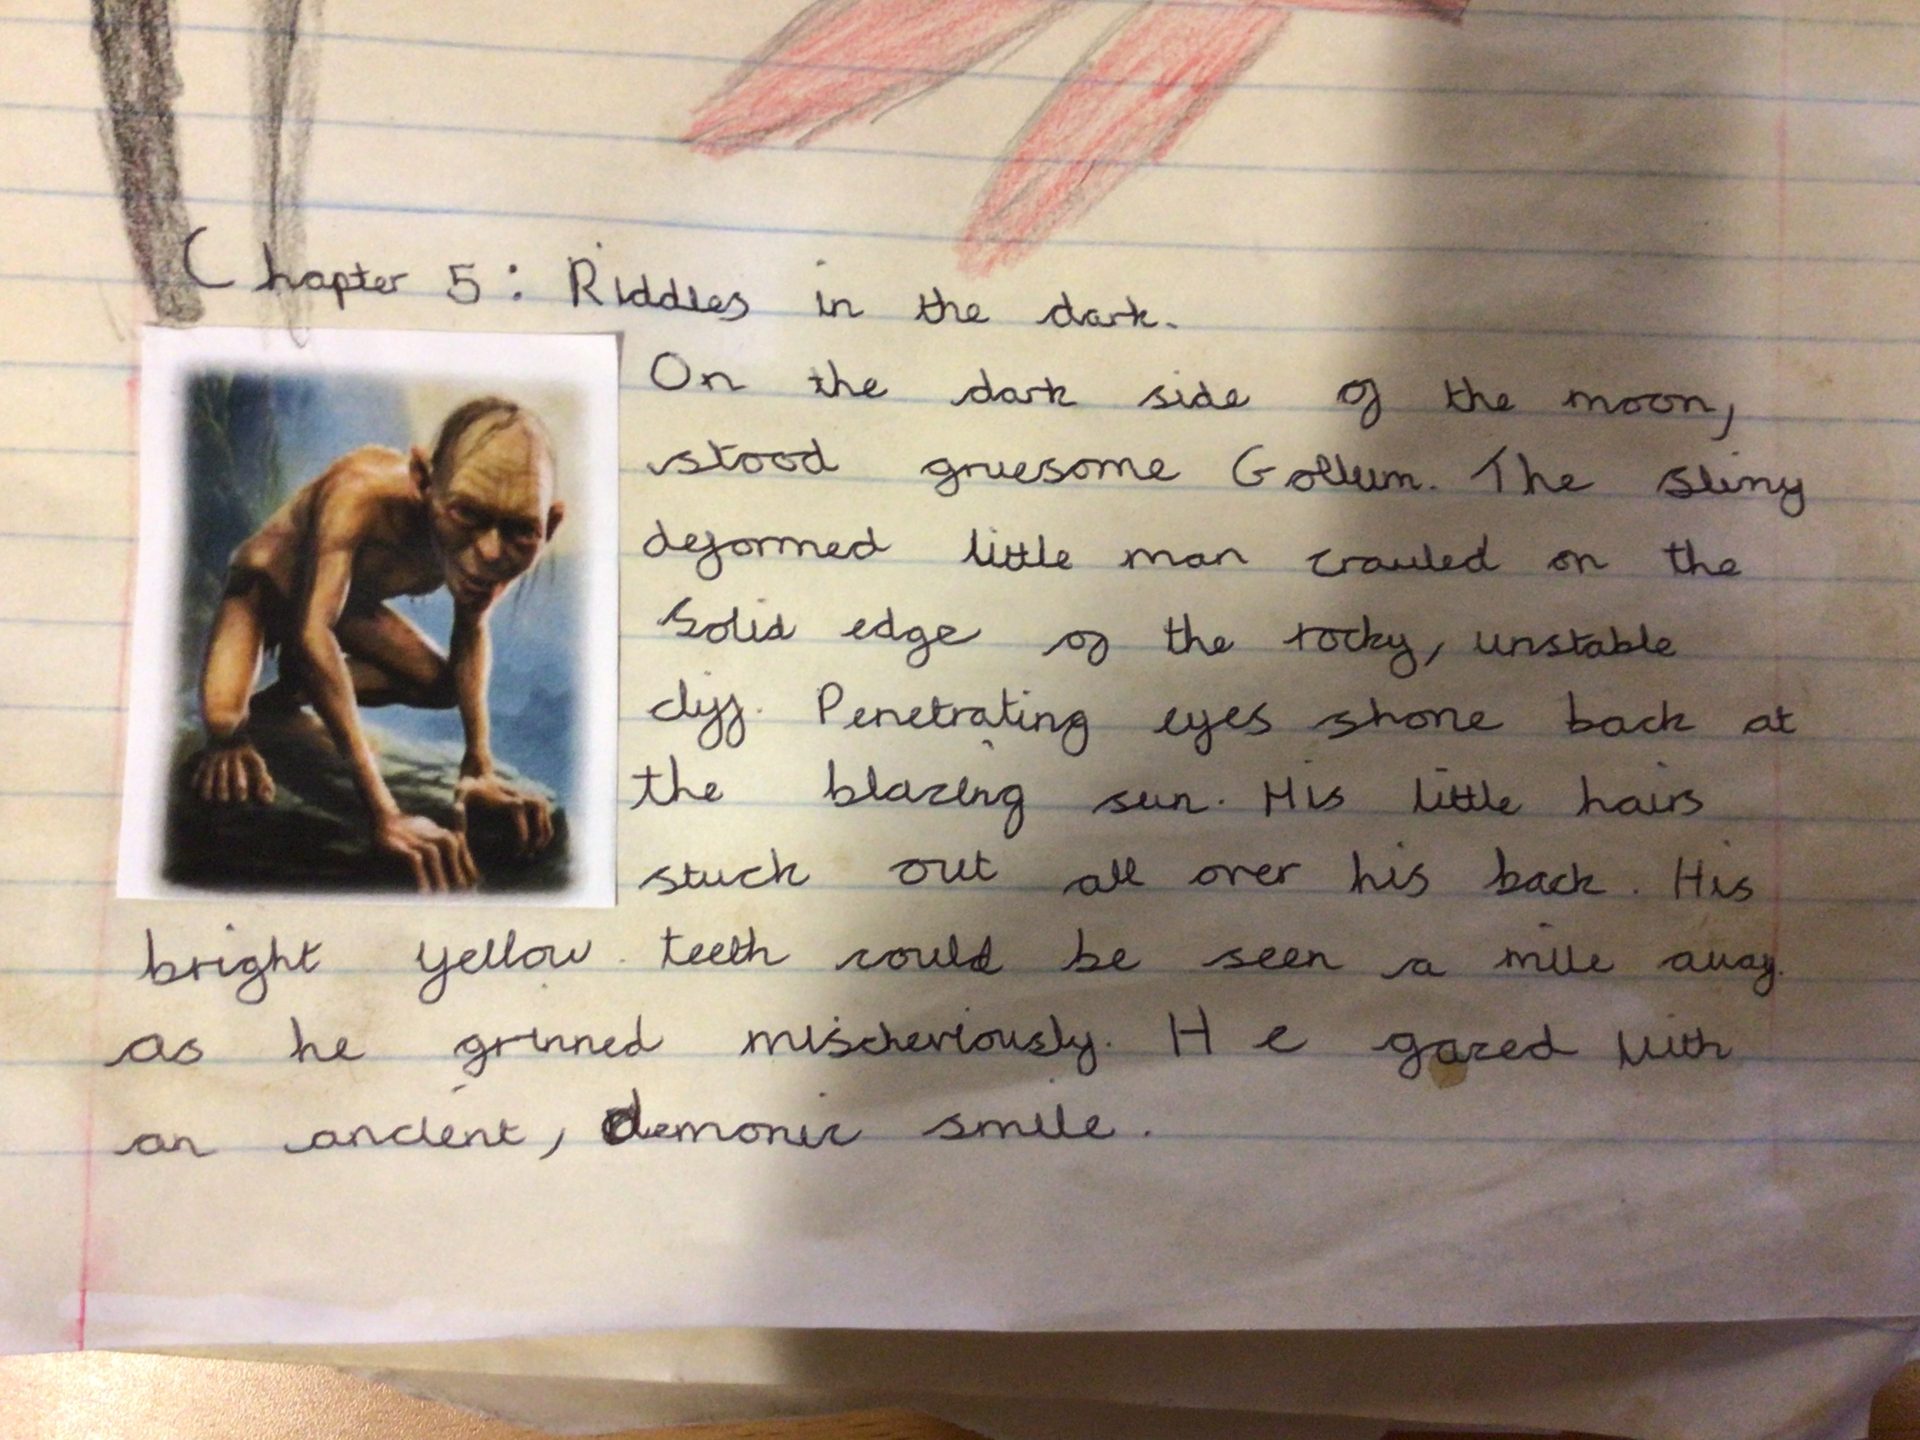 Chapter 5: Riddles in the dark.
On the dark side of the moon,
stood gruesome Gollum. The slimy
deformed little man crawled on the
solid edge of the rocky, unstable
cliff. Penetrating eyes shone back at
the blazing sun. His little hairs
stuck out all over his back. His
bright yellow teeth could be seen a mile away.
as he grinned mischeviously. He gazed with
an ancient, demonic smile.